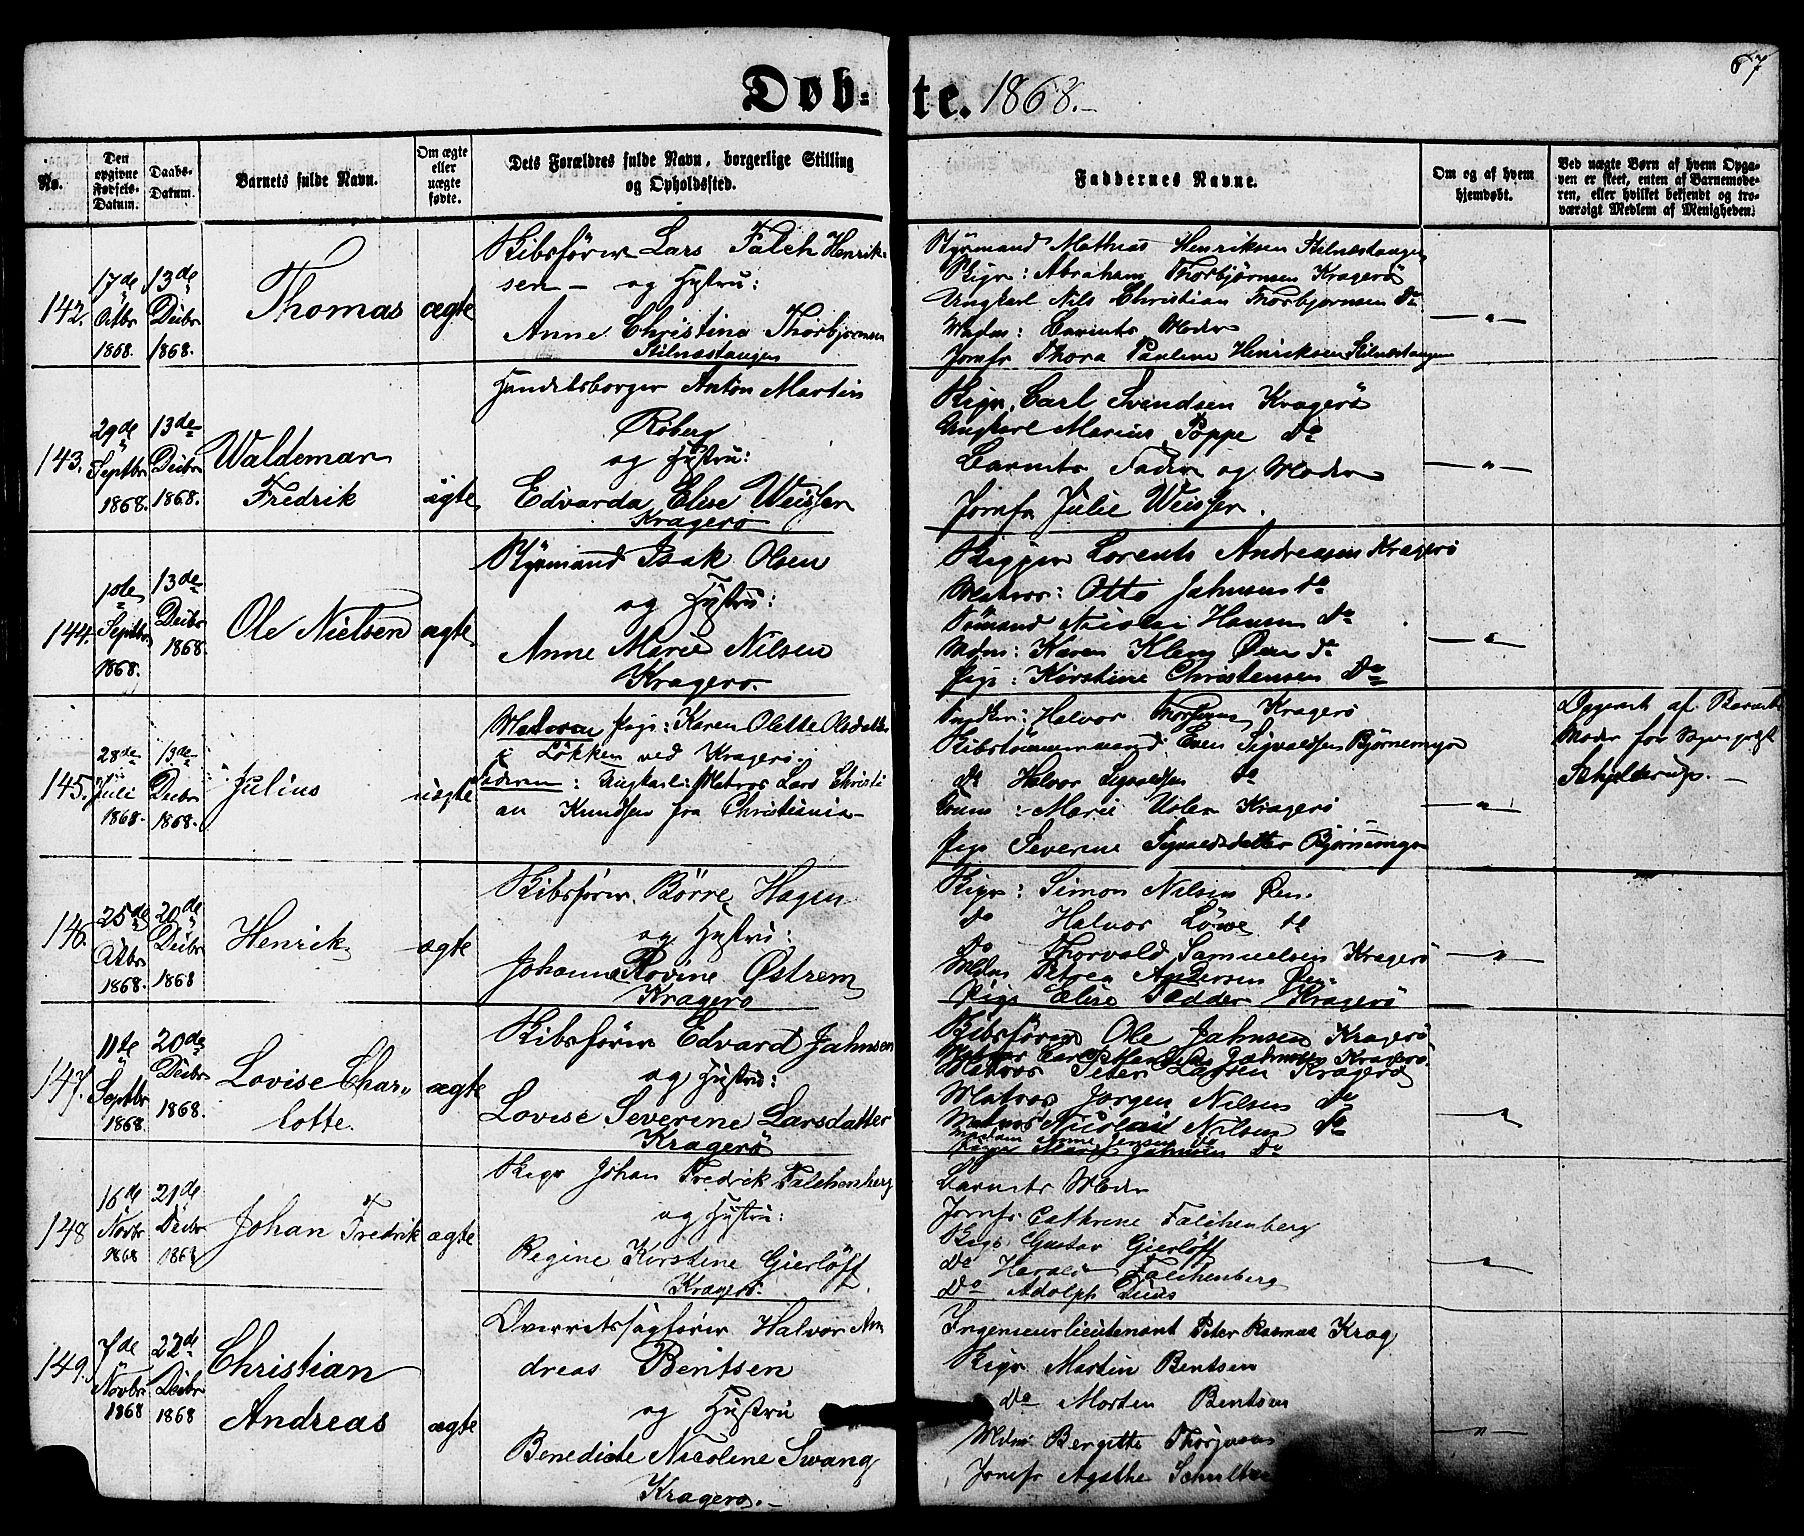 67
Døbte. 1868.-
No.
Den opgivne Fødsels-Datum.
Daabs-Datum.
Barnets fulde Navn.
Om ægte eller uægte fødte.
Dets Forældres fulde Navn, borgerlige Stilling og Opholdssted.
Faddernes Navne.
Om og af hvem hjemdøbt.
Ved uægte Børn af hvem Opgaven er skeet, enten af Barnemoderen, eller hvilket bekjendt og troværdigt Medlem af Menigheden.
142.
17de Octbr 1868.
13de Decbr 1868.
Thomas
ægte
Skibsfører Lars Falch Henrik-
sen - og Hustru:
Anne Christine Thorbjørnsen
Stilnæstangen
Styrmand Mathias Henriksen Stilnæstangen
Skipr: Abraham Thorbjørnsen Kragerø
Ungkarl Nils Christian Thorbjørnsen do
Mdm: Barnets Moder
Jomfr Thora Pauline Henriksen Stilnæstangen
143.
29de Septbr 1868.
13de Decbr 1868.
Waldemar
Fredrik
ægte
Handelsborger Anton Martin
Roberg
og Hustru:
Edvarda Elise Weisser
Kragerø
Skipr. Carl Svendsen Kragerø
Ungkarl Marius Poppe do
Barnets Fader og Moder
Jomfr Julie Weisser.
144.
1ste Septbr 1868.
13de Decbr 1868.
Ole Nielsen
ægte
Styrmand Isak Olsen
og Hustru:
Anne Marie Nilsen
Kragerø.
Skipper Lorents Andreasen Kragerø
Matros: Otto Jahnsen do
Sømand Nicolai Hansen do
Mdm: Karen Klem Øen do
Pige: Kirstine Christensen Do
145.
28de Juli 1868.
13de Decbr 1868.
Julius
uægte
Moderen Pige: Karen Olette Olsdatter
Løkken ved Kragerø.
Faderen: Ungkarl: Matros Lars Christi
an Knudsen fra Christiania
Halvor Kragerø
Skibstømmermand Even Sigvaldsen Bjørnemyr
do Halvor Sigvaldsen do
Marie Kragerø
Pige Severine Sigvaldsdatter Bjørnemyr
Opgivet af Barnets
Moder for Sognepræst
Schjelderup. -
146.
25de Octbr 1868.
20de Decbr 1868
Henrik
ægte
Skibsfører Børre Hagen
og Hustru:
Johanne Rovine Østrem
Kragerø
Skipr: Simon Nilsen Øen.
do Halvor Löwe do
Do Thorvald Samuelsen Kragerø
Mdm Petrea Andersen Øen
Pige Elise Fedder Kragerø
147.
11te Septbr 1868
20de Decbr 1868.
Lovise Char-
lotte.
ægte
Skibsfører Edvard Jahnsen
og Hustru:
Lovise Severine Larsdatter
Kragerø
Skibsfører Ole Jahnsen Kragerø
Jahnsen Kragerø
Matros Peter Larsen Kragerø
Matros Jørgen Nilsen do
Matros Nicolai Nilsen do
Madam Anne Jensen do
Pige Marie Jahnsen Do
148
16de Novbr 1868
21de Decbr 1868
Johan Fredrik
ægte
Skipr Johan Fredrik Falchenberg
og Hustru:
Regine Kirstine Gierløff
Kragerø.
Barnets Moder
Jomfr. Cathrine Falchenberg
Skipr Gustav Gierløff
do Harald Falchenberg
Do Adolph
149.
7de Novbr 1868
22de Decbr 1868
Christian
Andreas
ægte
Overretssagfører Halvor An
dreas Bentsen
og Hustru
Benedicte Nicoline Swang
Kragerø.-
Ingenieurlieutenant Peter Rasmus Krag
Skipr Martin Bentsen
Do Morten Bentsen
Mdm Bergitte
Jomfr Agathe